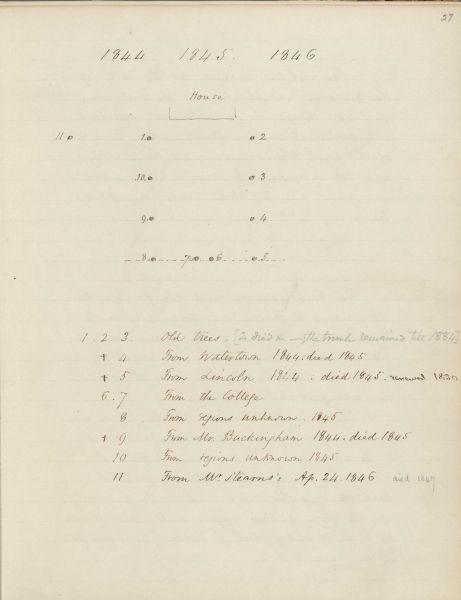 27
1844 1845. 1846
House
11 1. 2
10. 3
9. 4
8. 7. 6 5.
1. 2. 3. Old trees. [2 died in the trunk remained till 1884]
+ 4 From Watertown 1844: died 1845
+ 5 From Lincoln 1844. died 1845. renewed
6. 7 From the College
8 From regions unknown. 1845
+ 9 From Mr. Buckingham 1844. died 1845
10 From regions unknown 1845
11 From Mr. Stearns's Ap. 24. 1846 died 1847